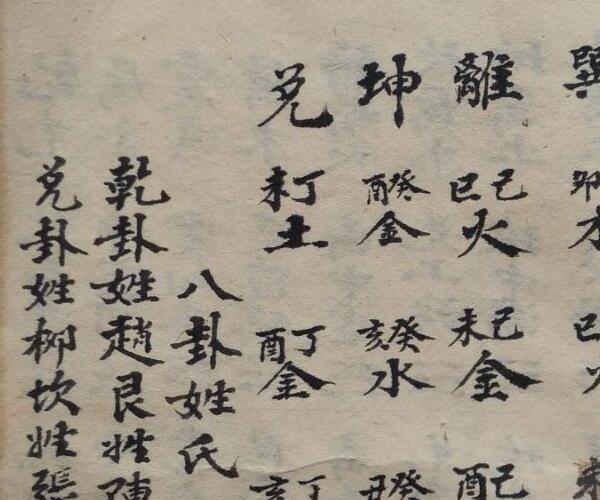 巽
離 己巳火 己未金 己酉
坤 癸酉金 癸亥水 癸丑
兌 丁未土 丁酉金 丁亥
八卦姓氏
乾卦姓趙艮姓陳
兌卦姓柳坎姓張